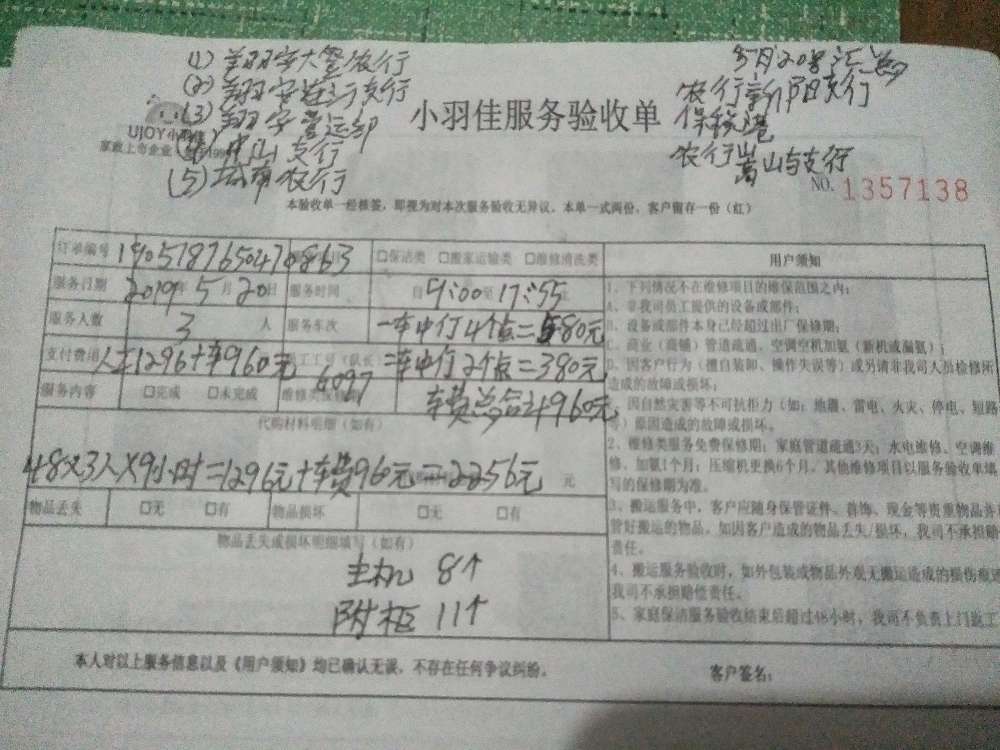 (1) 翔宇大董农行
5月20号汇总
(2) 翔宇 支行
农行新阳支行
(3) 翔宇营运部
保税港
小羽佳服务验收单
UJOY小羽佳
家政上市企业
(4) 中山支行
农行嵩山与支行
(5) 城南农行
NO. 1357138
本验收单一经核签，即视为对本次服务验收无异议。本单一式两份，客户留存一份（红）
订单编号 190518765047 863 □保洁类 □搬家运输类 □维修清洗类
用户须知
服务日期 2019年 5月 20日 服务时间 自 9:00 至 17:55
服务人数 3 人 服务车次 一车中行4个点=580元
支付费用 人工1296+车960元 员工工号（队长） 6097 二车中行2个点=380元
服务内容 □完成 □未完成 车费总合计960元
代购材料明细（如有）
48×3人×9小时=1296元+车费960元=2256元 元
物品丢失 □无 □有 物品损坏 □无 □有
物品丢失或损坏明细填写（如有）
主机 8个
附柜 11个
1、下列情况不在维修项目的维保范围之内：
A、非我司员工提供的设备或部件；
B、设备或部件本身已经超过出厂保修期；
C、商业（商铺）管道疏通、空调空机加氨（新机或漏氨）；
D、因客户行为（擅自装卸、操作失误等）或另请非我司人员检修所
造成的故障或损坏；
因自然灾害等不可抗住力（如：地震、雷电、火灾、停电、短路
等）原因造成的故障或损坏。
2、维修类服务免费保修期：家庭管道疏通3天；水电维修、空调维
修、加氨1个月；压缩机更换6个月。其他维修项目以服务验收单填
写的保修期为准。
3、搬运服务中，客户应随身保管证件、首饰、现金等贵重物品并
管好搬运的物品。如因客户造成的物品丢失/损坏，我司不承担赔
责任。
4、搬运服务验收时，如外包装或物品外观无搬运造成的损伤痕迹
我司不承担赔偿责任。
5、家庭保洁服务验收结束后超过48小时，我司不负责上门返工
本人对以上服务信息以及《用户须知》均已确认无误，不存在任何争议纠纷。
客户签名：